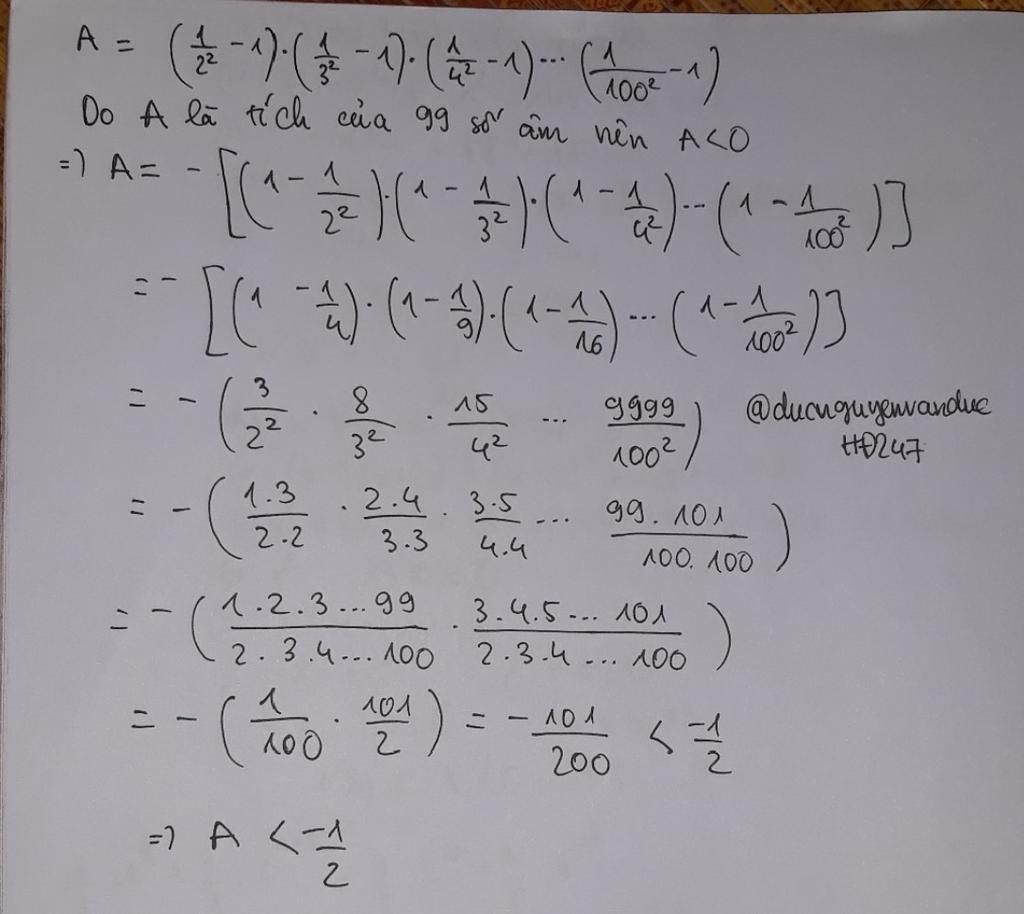 A = (1/2² - 1)·(1/3² - 1)·(1/4² - 1)···(1/100² - 1)
Do A là tích của 99 số âm nên A<0
=> A = - [(1 - 1/2²)·(1 - 1/3²)·(1 - 1/4²)···(1 - 1/100²)]
= - [(1 - 1/4)·(1 - 1/9)·(1 - 1/16)···(1 - 1/100²)]
= - (3/2² · 8/3² · 15/4² ... 9999/100²) @ducnguyenvanduc
HĐ247
= - (1.3/2.2 · 2.4/3.3 · 3.5/4.4 ... 99.101/100.100)
= - (1.2.3...99/2.3.4...100 · 3.4.5...101/2.3.4...100)
= - (1/100 · 101/2) = -101/200 < -1/2
=> A < -1/2